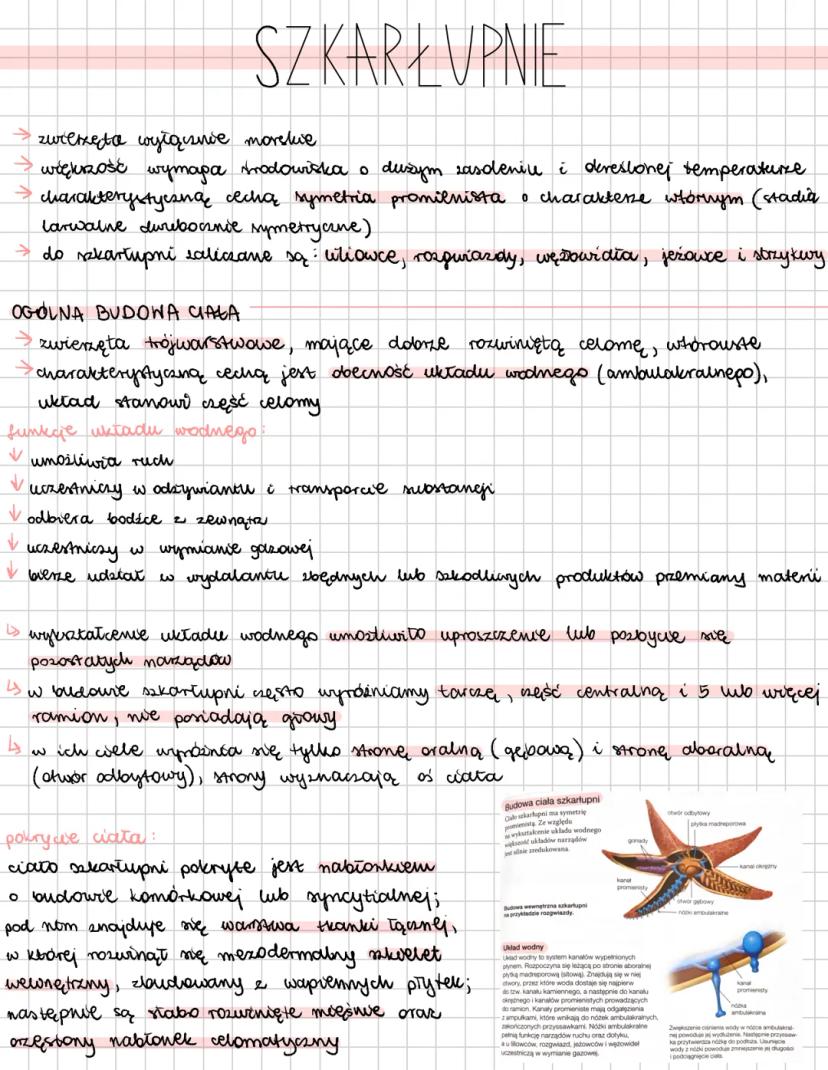 SZKARŁUPNIE
→ zwierzęta wyłącznie morskie
→ większość wymaga środowiska o dużym zasoleniu i określonej temperaturze
→ charakterystyczną cechą symetria promienista o charakterze wtórnym (stadia
larwalne dwubocznie symetryczne)
→ do szkarłupni zaliczane są: liliowce, rozgwiazdy, wężowidła, jeżowce i strzykwy
OGÓLNA BUDOWA CIAŁA
→ zwierzęta trójwarstwowe, mające dobrze rozwiniętą celomę, wtórouste
→ charakterystyczną cechą jest obecność układu wodnego (ambulakralnego),
układ stanowi część celomy
funkcje układu wodnego:
↓ umożliwia ruch
↓ uczestniczy w odżywianiu i transporcie substancji
↓ odbiera bodźce z zewnątrz
↓ uczestniczy w wymianie gazowej
↓ bierze udział w wydalaniu zbędnych lub szkodliwych produktów przemiany materii
↳ wykształcenie układu wodnego umożliwiło uproszczenie lub pozbycie się
pozostałych narządów
↳ w budowie szkarłupni często wyróżniamy tarczę, część centralną i 5 lub więcej
ramion, nie posiadają głowy
↳ w ich ciele wyróżnia się tylko stronę oralną (gębową) i stronę aboralną
(otwór odbytowy), strony wyznaczają oś ciała
pokrycie ciała:
ciało szkarłupni pokryte jest nabłonkiem
o budowie komórkowej lub syncytialnej;
pod nim znajduje się warstwa tkanki łącznej,
w której rozwinął się mezodermalny szkielet
wewnętrzny, zbudowany z wapiennych płytek;
następnie są słabo rozwinięte mięśnie oraz
orzęsiony nabłonek celomatyczny
Budowa ciała szkarłupni
Ciało szkarłupni ma symetrię
promienistą. Ze względu
na wykształcenie układu wodnego
większość układów narządów
jest silnie zredukowana.
Budowa wewnętrzna szkarłupni
na przykładzie rozgwiazdy.
otwór odbytowy
płytka madreporowa
gonady
kanał okrężny
kanał
promienisty
otwór gębowy
nóżki ambulakralne
Układ wodny
Układ wodny to system kanałów wypełnionych
płynem. Rozpoczyna się leżącą po stronie aboralnej
płytką madreporową (sitową). Znajdują się w niej
otwory, przez które woda dostaje się najpierw
do tzw. kanału kamiennego, a następnie do kanału
okrężnego i kanałów promienistych prowadzących
do ramion. Kanały promieniste mają odgałęzienia
z ampułkami, które wnikają do nóżek ambulakralnych,
zakończonych przyssawkami. Nóżki ambulakralne
pełnią funkcję narządów ruchu oraz dotyku,
a u liliowców, rozgwiazd, jeżowców i wężowideł
uczestniczą w wymianie gazowej.
kanał
promienisty
nóżka
ambulakralna
Zwiększenie ciśnienia wody w nóżce ambulakral-
nej powoduje jej wydłużenie. Następnie przyssaw-
ka przytwierdza nóżkę do podłoża. Usunięcie
wody z nóżki powoduje zmniejszenie jej długości
i podciągnięcie ciała.